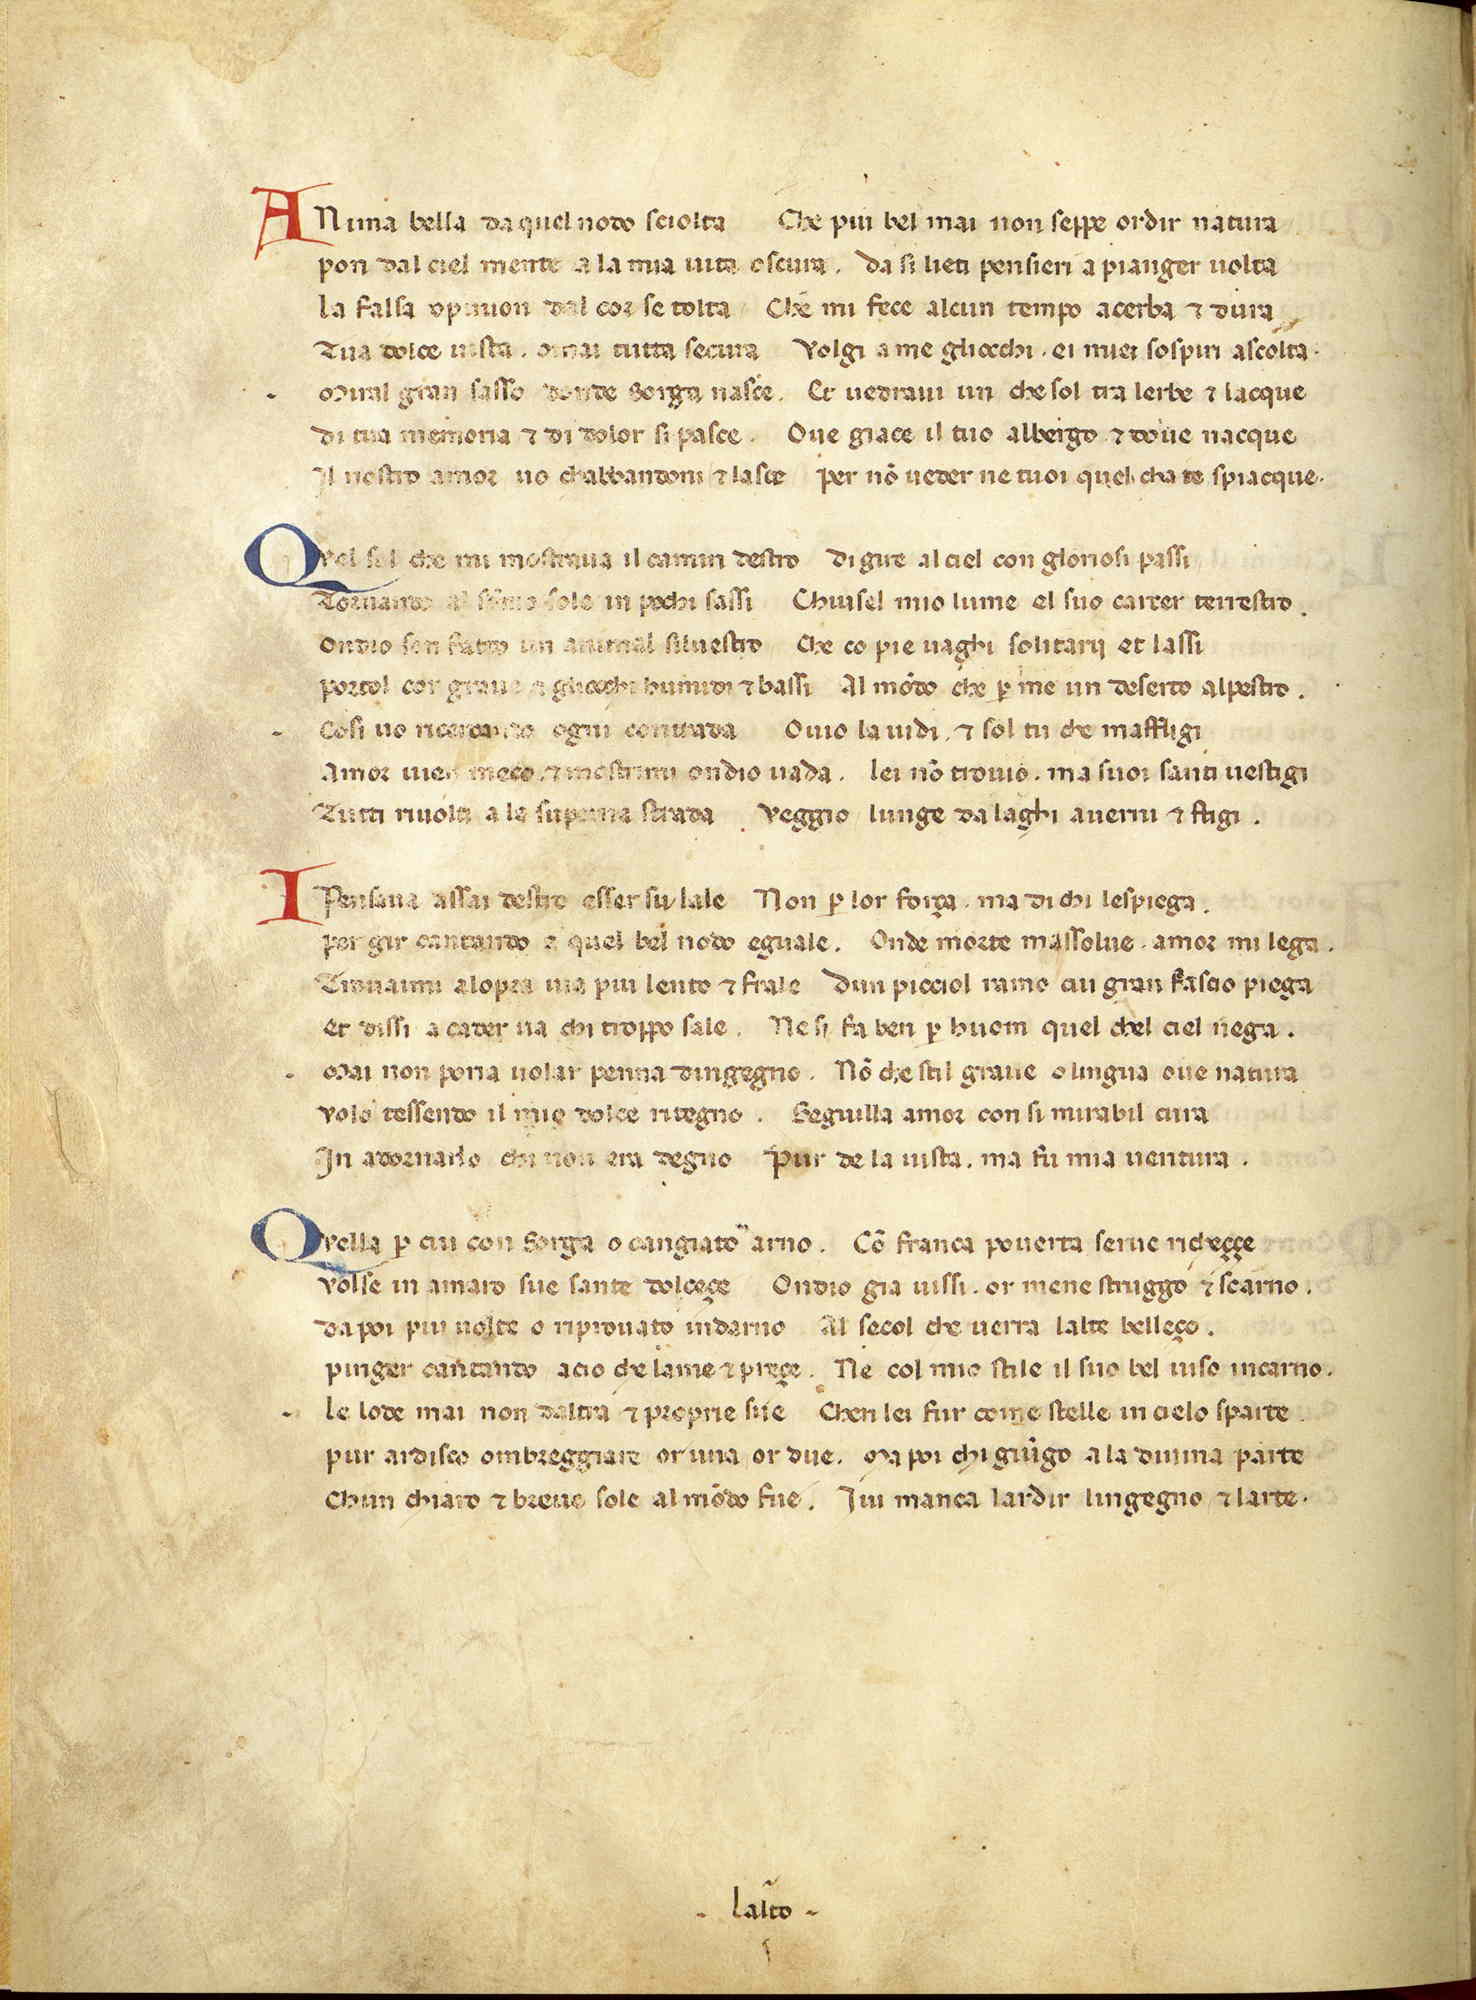 ANima bella da quel nodo sciolta Che piu bel mai non seppe ordir natura
pon dal ciel mente a la mia uita oscura. da si lieti pensieri a pianger uolta
la falsa opinion dal cor se tolta Che mi fece alcun tempo acerba ⁊ dura
Tua dolce uista. omai tutta secura Volgi a me gliocchi. ei miei sospiri ascolta.
Miral gran sasso donde Sorga nasce. Et uedraui un che sol tra lerbe ⁊ lacque
di tua memoria ⁊ di dolor si pasce. Oue giace il tuo albergo ⁊ doue nacque
Il nostro amor uo chabbandoni ⁊ lasce per nō ueder ne tuoi quel cha te spiacque.
QVel sol che mi mostraua il camin destro di gire al ciel con gloriosi passi
Tornando al sōmo sole in pochi sassi Chiusel mio lume el suo carcer terrestro.
Ondio son fatto un animal siluestro Che co pie uaghi solitarij et lassi
portol cor graue ⁊ gliocchi humidi ⁊ bassi Al mōdo che ꝑ me un deserto alpestro.
Cosi uo ricercando ogni contrada Ouio la uidi. ⁊ sol tu che maffligi
Amor uien meco. ⁊ mostrimi ondio uada. lei nō trouio. ma suoi santi uestigi
Tutti riuolti a la superna strada Veggio lunge da laghi auerni ⁊ stigi.
IPensaua assai destro esser su lale Non ꝑ lor força. ma di chi lespiega.
per gir cantando a quel bel nodo eguale. Onde morte massolue. amor mi lega.
Trouaimi alopra uia piu lento ⁊ frale dun picciol ramo cui gran fascio piega
et dissi a cader ua chi troppo sale. Ne si fa ben ꝑ huom quel chel ciel nega.
Mai non poria uolar penna dingegno. Nō che stil graue o lingua oue natura
volo tessendo il mio dolce ritegno. Seguilla amor con si mirabil cura
In adornarlo chi non era degno Pur de la uista. ma fu mia uentura.
QVella ꝑ cui con Sorga o cangiato arno. Cō franca pouerta serue richeççe
volse in amaro sue sante dolceçe Ondio gia uissi. or mene struggo ⁊ scarno.
da poi piu uolte o riprouato indarno Al secol che uerra lalte belleço.
pinger cantando acio che lame ⁊ preçe. Ne col mio stile il suo bel uiso incarno.
le lode mai non daltra ⁊ proprie sue Chen lei fur come stelle in cielo sparte
pur ardisco ombreggiare or una or due. Ma poi chi giūgo a la diuina parte
Chun chiaro ⁊ breue sole al mōdo fue. Iui manca lardir lingegno ⁊ larte.